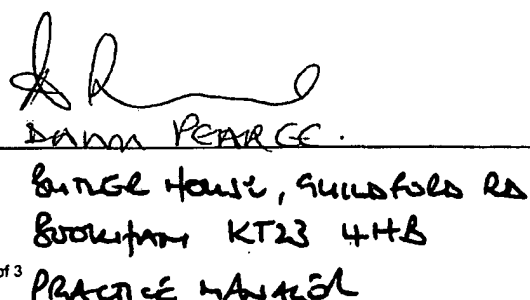 DAWN PEARCE.
BUTLER HOUSE, GUILDFORD RD
BOOKHAM KT23 4HB
of 3
PRACTICE MANAGER